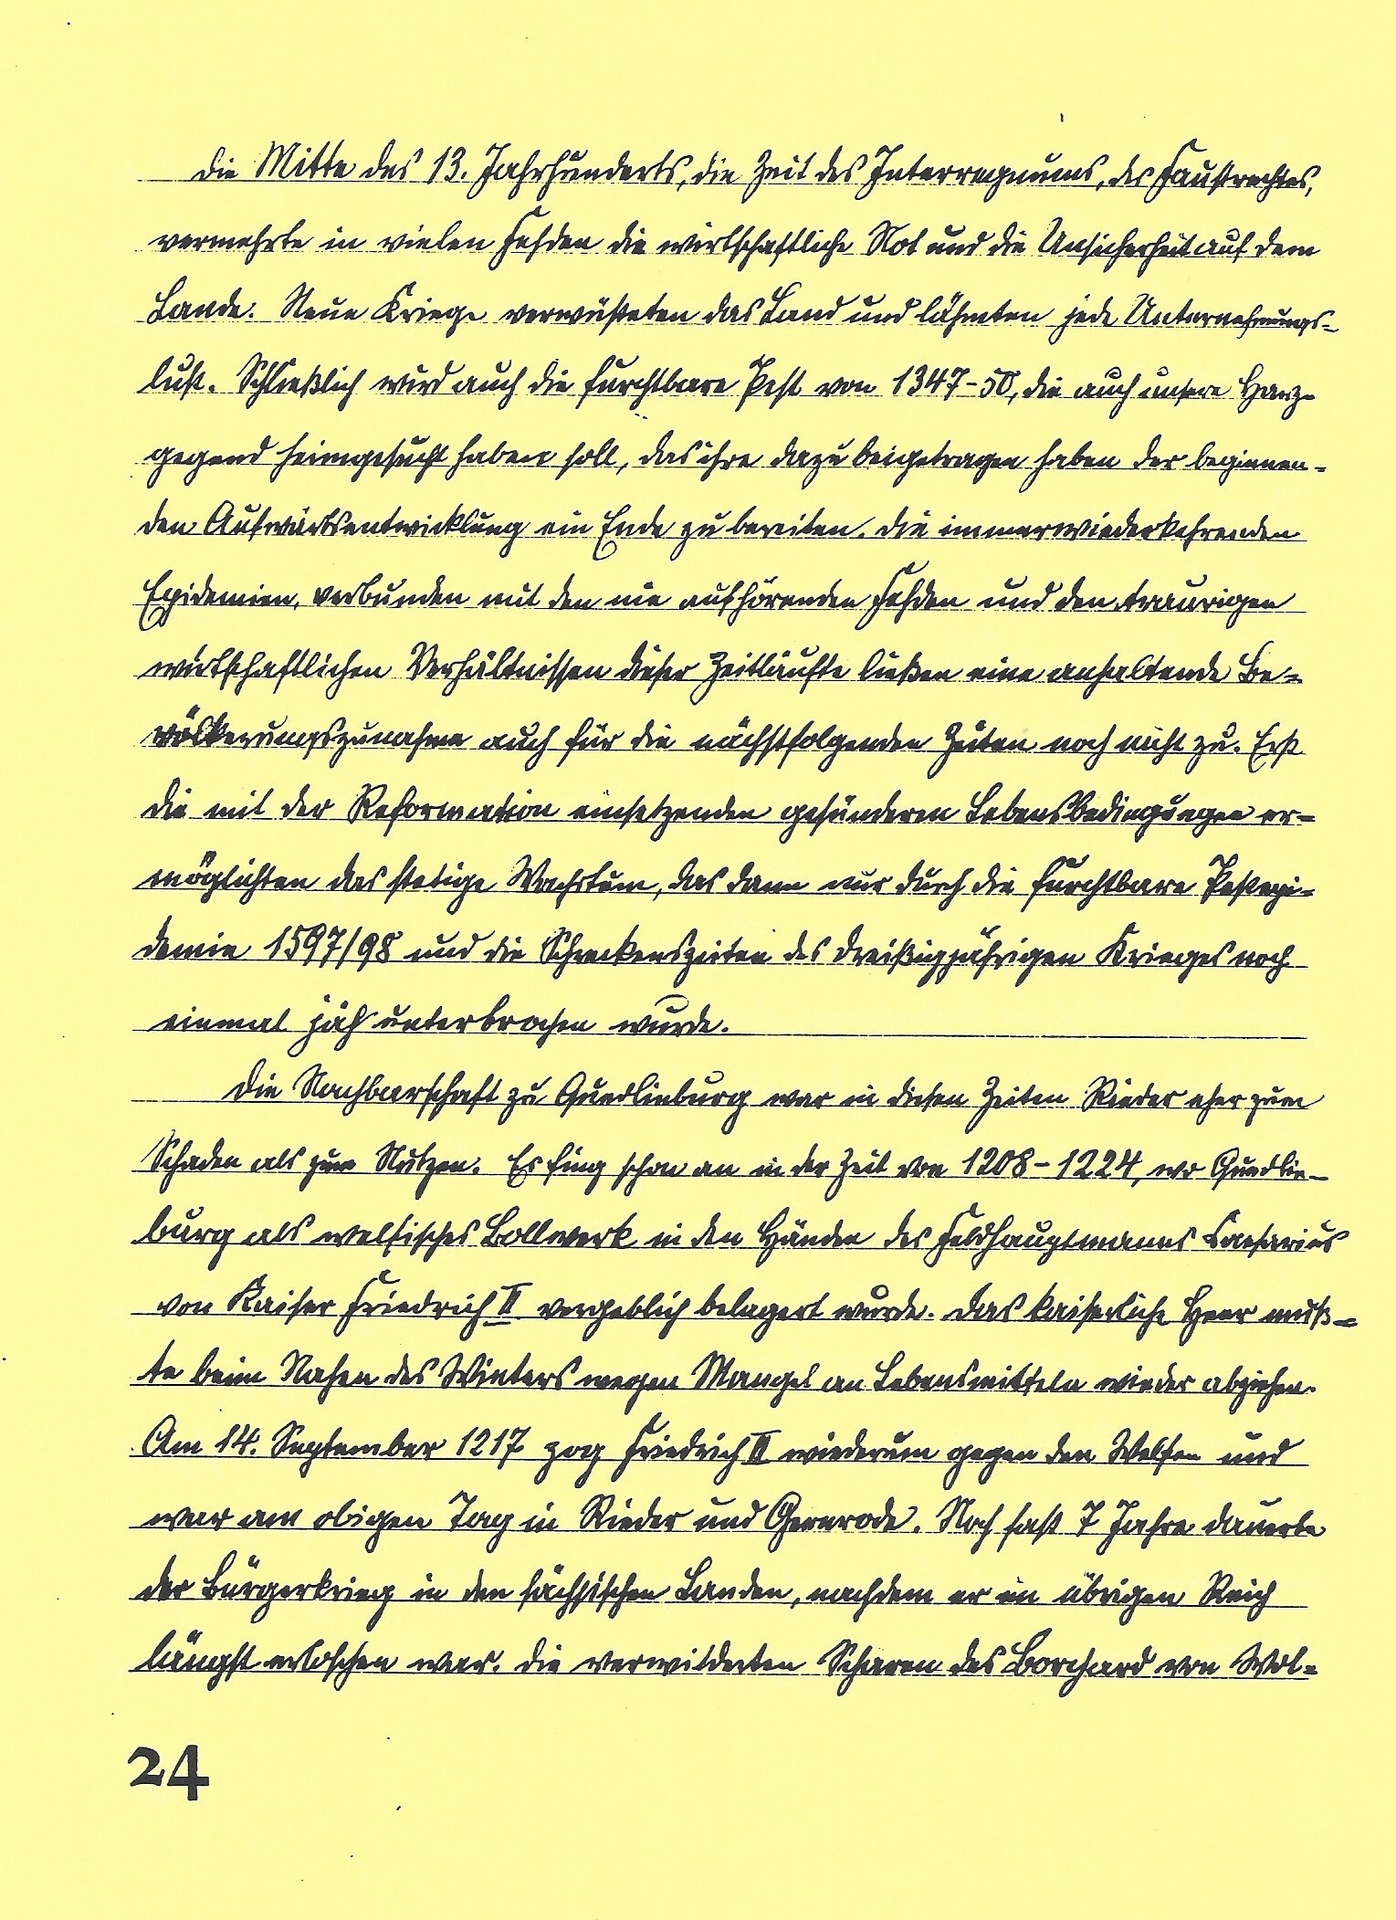 Die Mitte des 13. Jahrhunderts, die Zeit des Interregnums, des Faustrechtes,
vermehrte in vielen Fehden die wirtschaftliche Not und die Unsicherheit auf dem
Lande. Neue Kriege verwüsteten das Land und lähmten jede Unternehmungs-
lust. Schließlich wird auch die furchtbare Pest von 1347-50, die auch unsere Harz-
gegend heimgesucht haben soll, das ihre dazu beigetragen haben der beginnen-
den Aufwärtsentwicklung ein Ende zu bereiten. Die immerwiederkehrenden
Epidemien, verbunden mit den nie aufhörenden Fehden und den traurigen
wirtschaftlichen Verhältnissen dieser Zeitläufte ließen eine anhaltende Be-
völkerungszunahme auch für die nächstfolgenden Zeiten noch nicht zu. Erst
die mit der Reformation einsetzenden gesünderen Lebensbedingungen er-
möglichten das stetige Wachstum, das dann nur durch die furchtbare Pestepi-
demie 1597/98 und die Schreckenszeiten des dreißigjährigen Krieges noch
einmal jäh unterbrochen wurde.
Die Nachbarschaft zu Quedlinburg war in diesen Zeiten Rieder eher zum
Schaden als zum Nutzen. Es fing schon an in der Zeit von 1208-1224, wo Quedlin-
burg als welfisches Bollwerk in den Händen des Feldhauptmanns Caesarius
von Kaiser Friedrich II vergeblich belagert wurde. Das kaiserliche Heer muß-
te beim Nahen des Winters wegen Mangel an Lebensmitteln wieder abziehen.
Am 14. September 1217 zog Friedrich II wiederum gegen den Welfen und
war am obigen Tag in Rieder und Gernrode. Noch fast 7 Jahre dauerte
der Bürgerkrieg in den sächsischen Landen, nachdem er im übrigen Reich
längst erloschen war. Die verwilderten Scharen des Borchard von Wol-
24